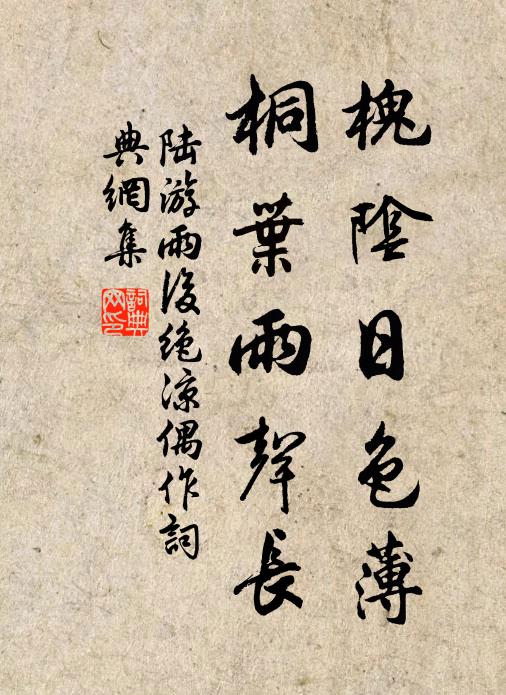 槐陰日色薄
桐葉雨聲長
陆游雨後絶涼偶作詞
典網集
詞典網印